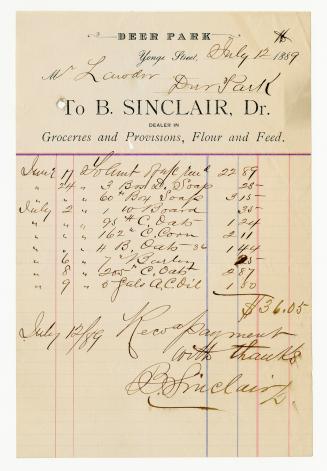 DEER PARK
Yonge Street, July 12 1889
Mr Lawder
Deer Park
To B. SINCLAIR, Dr.
DEALER IN
Groceries and Provisions, Flour and Feed.
June 11 To Amt 22 89
" 24 " 3 Bars Soap 25
" " 60 " Box Soap 3 15
July 2 " 1 W Board 35
" " 95 " C. Oats 1 24
" " 162 " C. Corn 2 11
" " 4 B. Oats 36 1 44
" 6 " 7 " Barley
" 8 " 205 " C. Oats 2 87
" 9 " 5 Gals A.C. Oil 1 80
$36.05
July 12/89 Recd payment
with thanks
B. Sinclair